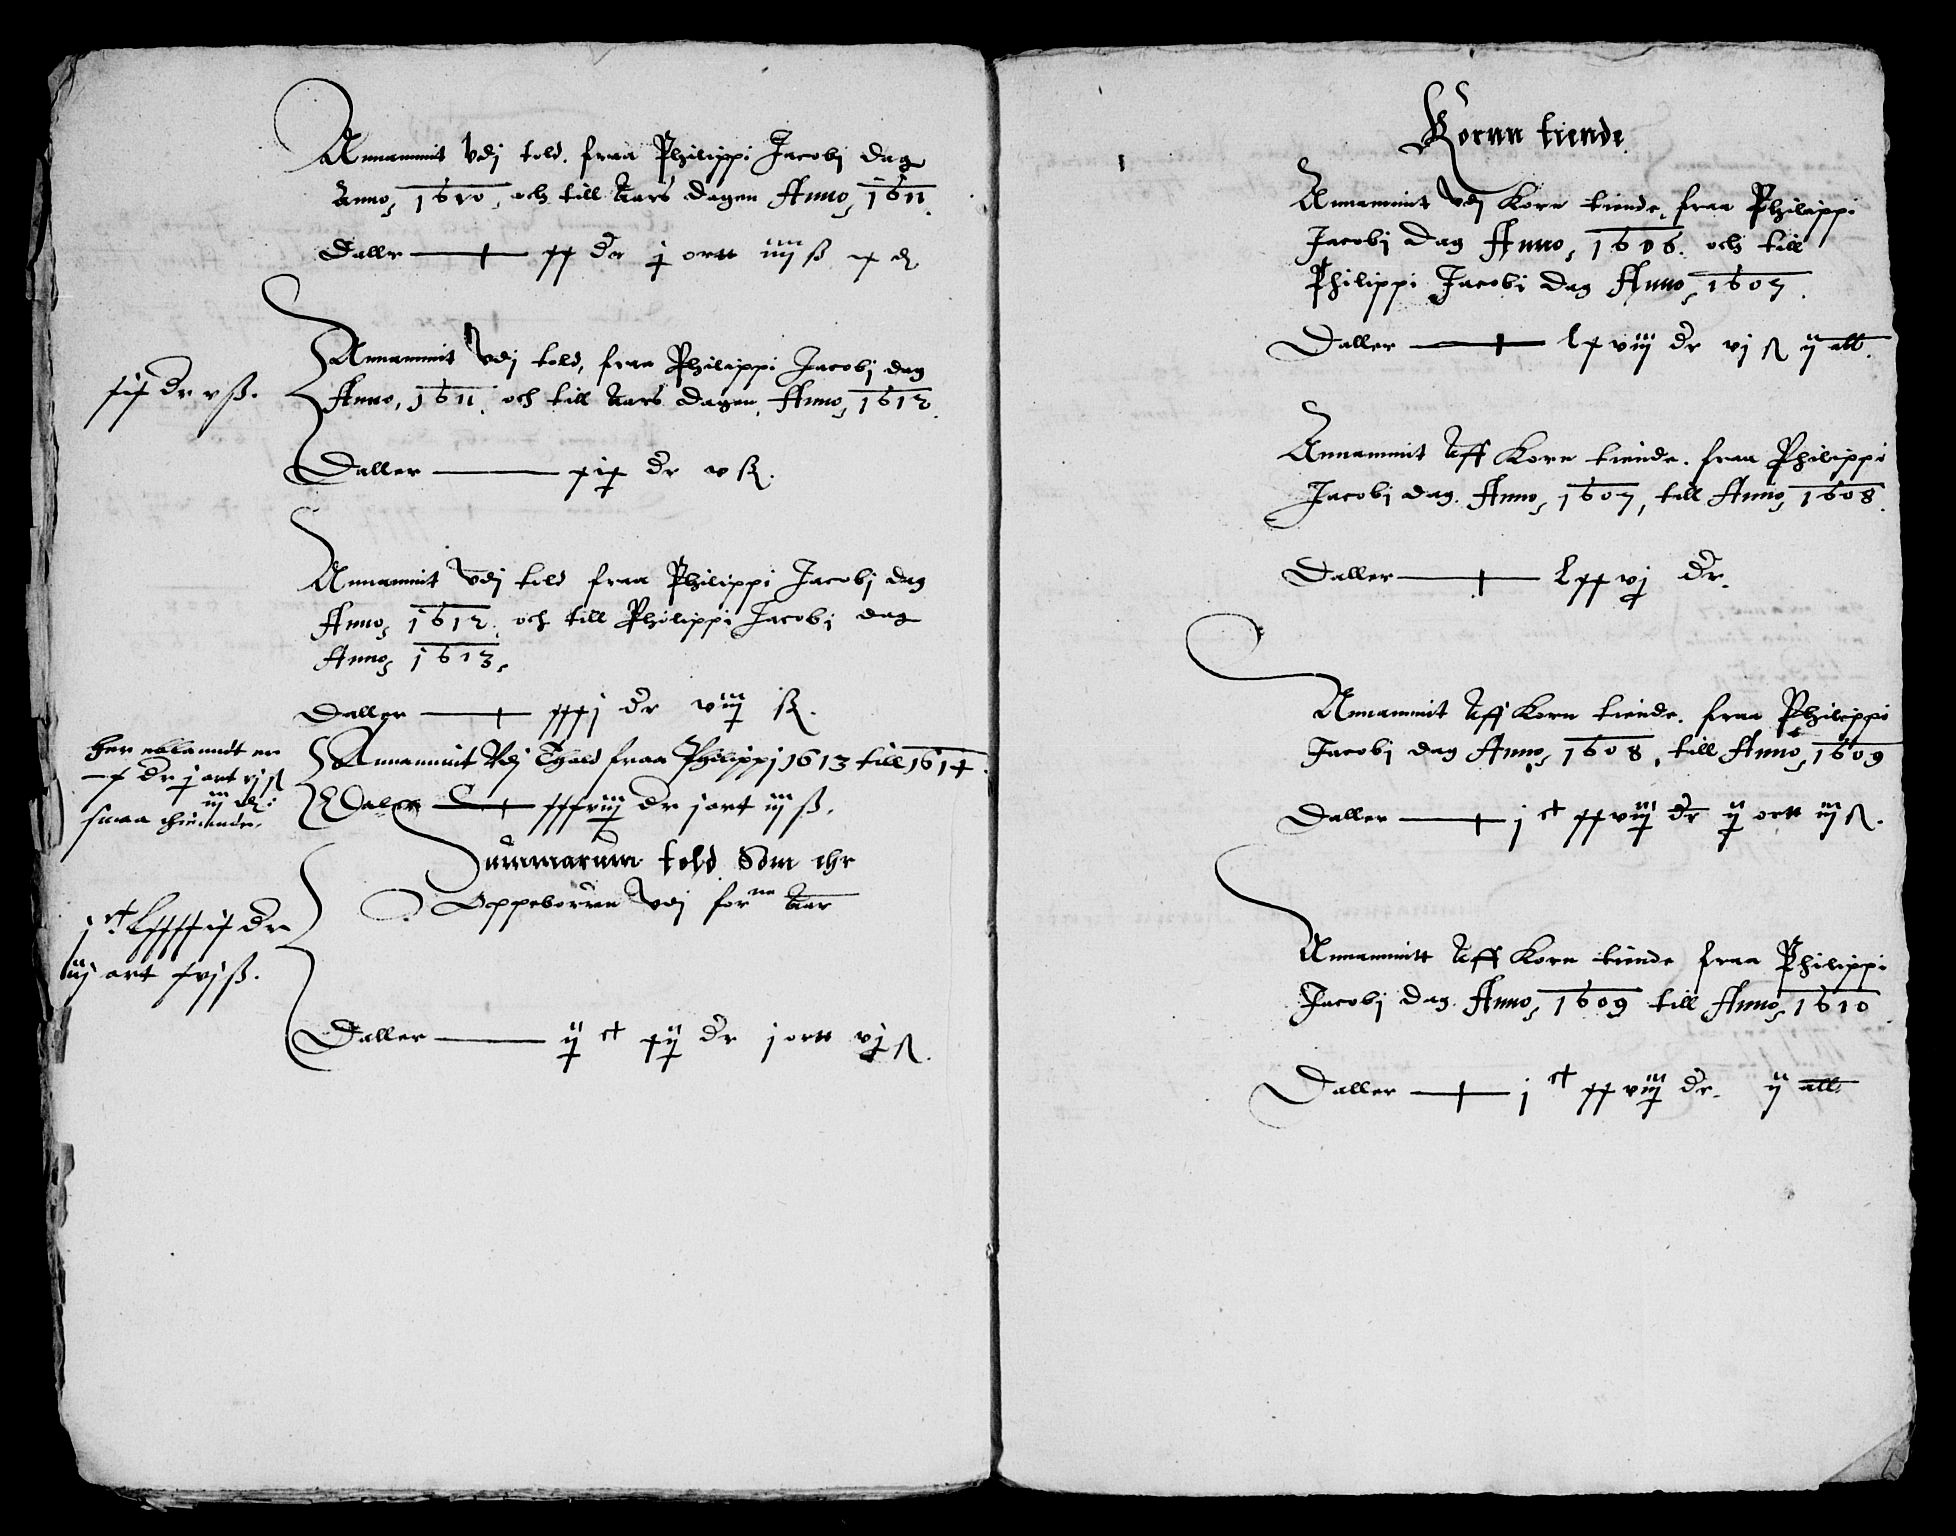 Annammit Vdj told. fraa Philippi Jacobj dag
Anno, 1610, och till Aars dagen Anno, 1611.
Daller xx dr j ortt iiij ß x d
Annammit Vdj told, fraa Philippi Jacobj dag
Anno, 1611. och till Aars dagen, Anno, 1612.
xix dr v ß.
Daller xix dr v ß.
Annammit Vdj told fraa Philippi Jacobj dag
Anno, 1612. och till Philippi Jacobj dag
Anno, 1613.
Daller xxxj dr viij ß.
her iblanndt er
x dr j ort vj ß
iij d:
smaa thiennde.
Annammit Vdj Thold fraa Philippj 1613 till 1614.
Daler xxxviij dr j ort iij ß.
Summarum told Som ehr
Oppeborren Vdj forne Aar
j ct lxxxxix dr
iij ort xvj ß.
Daller ij ct xij dr j ortt vj ß.
Kornn tiende
Annammit Vdj Korn tiende, fraa Philippi
Jacobj dag Anno, 1606. och till
Philippi Jacobi dag Anno, 1607.
Daller lxviij dr vj ß ij alb.
Annammit Aff Korn tiende. fraa Philippi
Jacobj dag. Anno, 1607, till Anno, 1608.
Daller lxxvj dr.
Annammit Aff Korn tiende. fraa Philippi
Jacobj dag Anno, 1608, till Anno, 1609
Daller j ct xxviij dr ij ortt iij ß.
Annammitt Aff Korn tiende fraa Philippi
Jacobj dag. Anno, 1609 till Anno, 1610.
Daller j ct xxviij dr. ij alb.